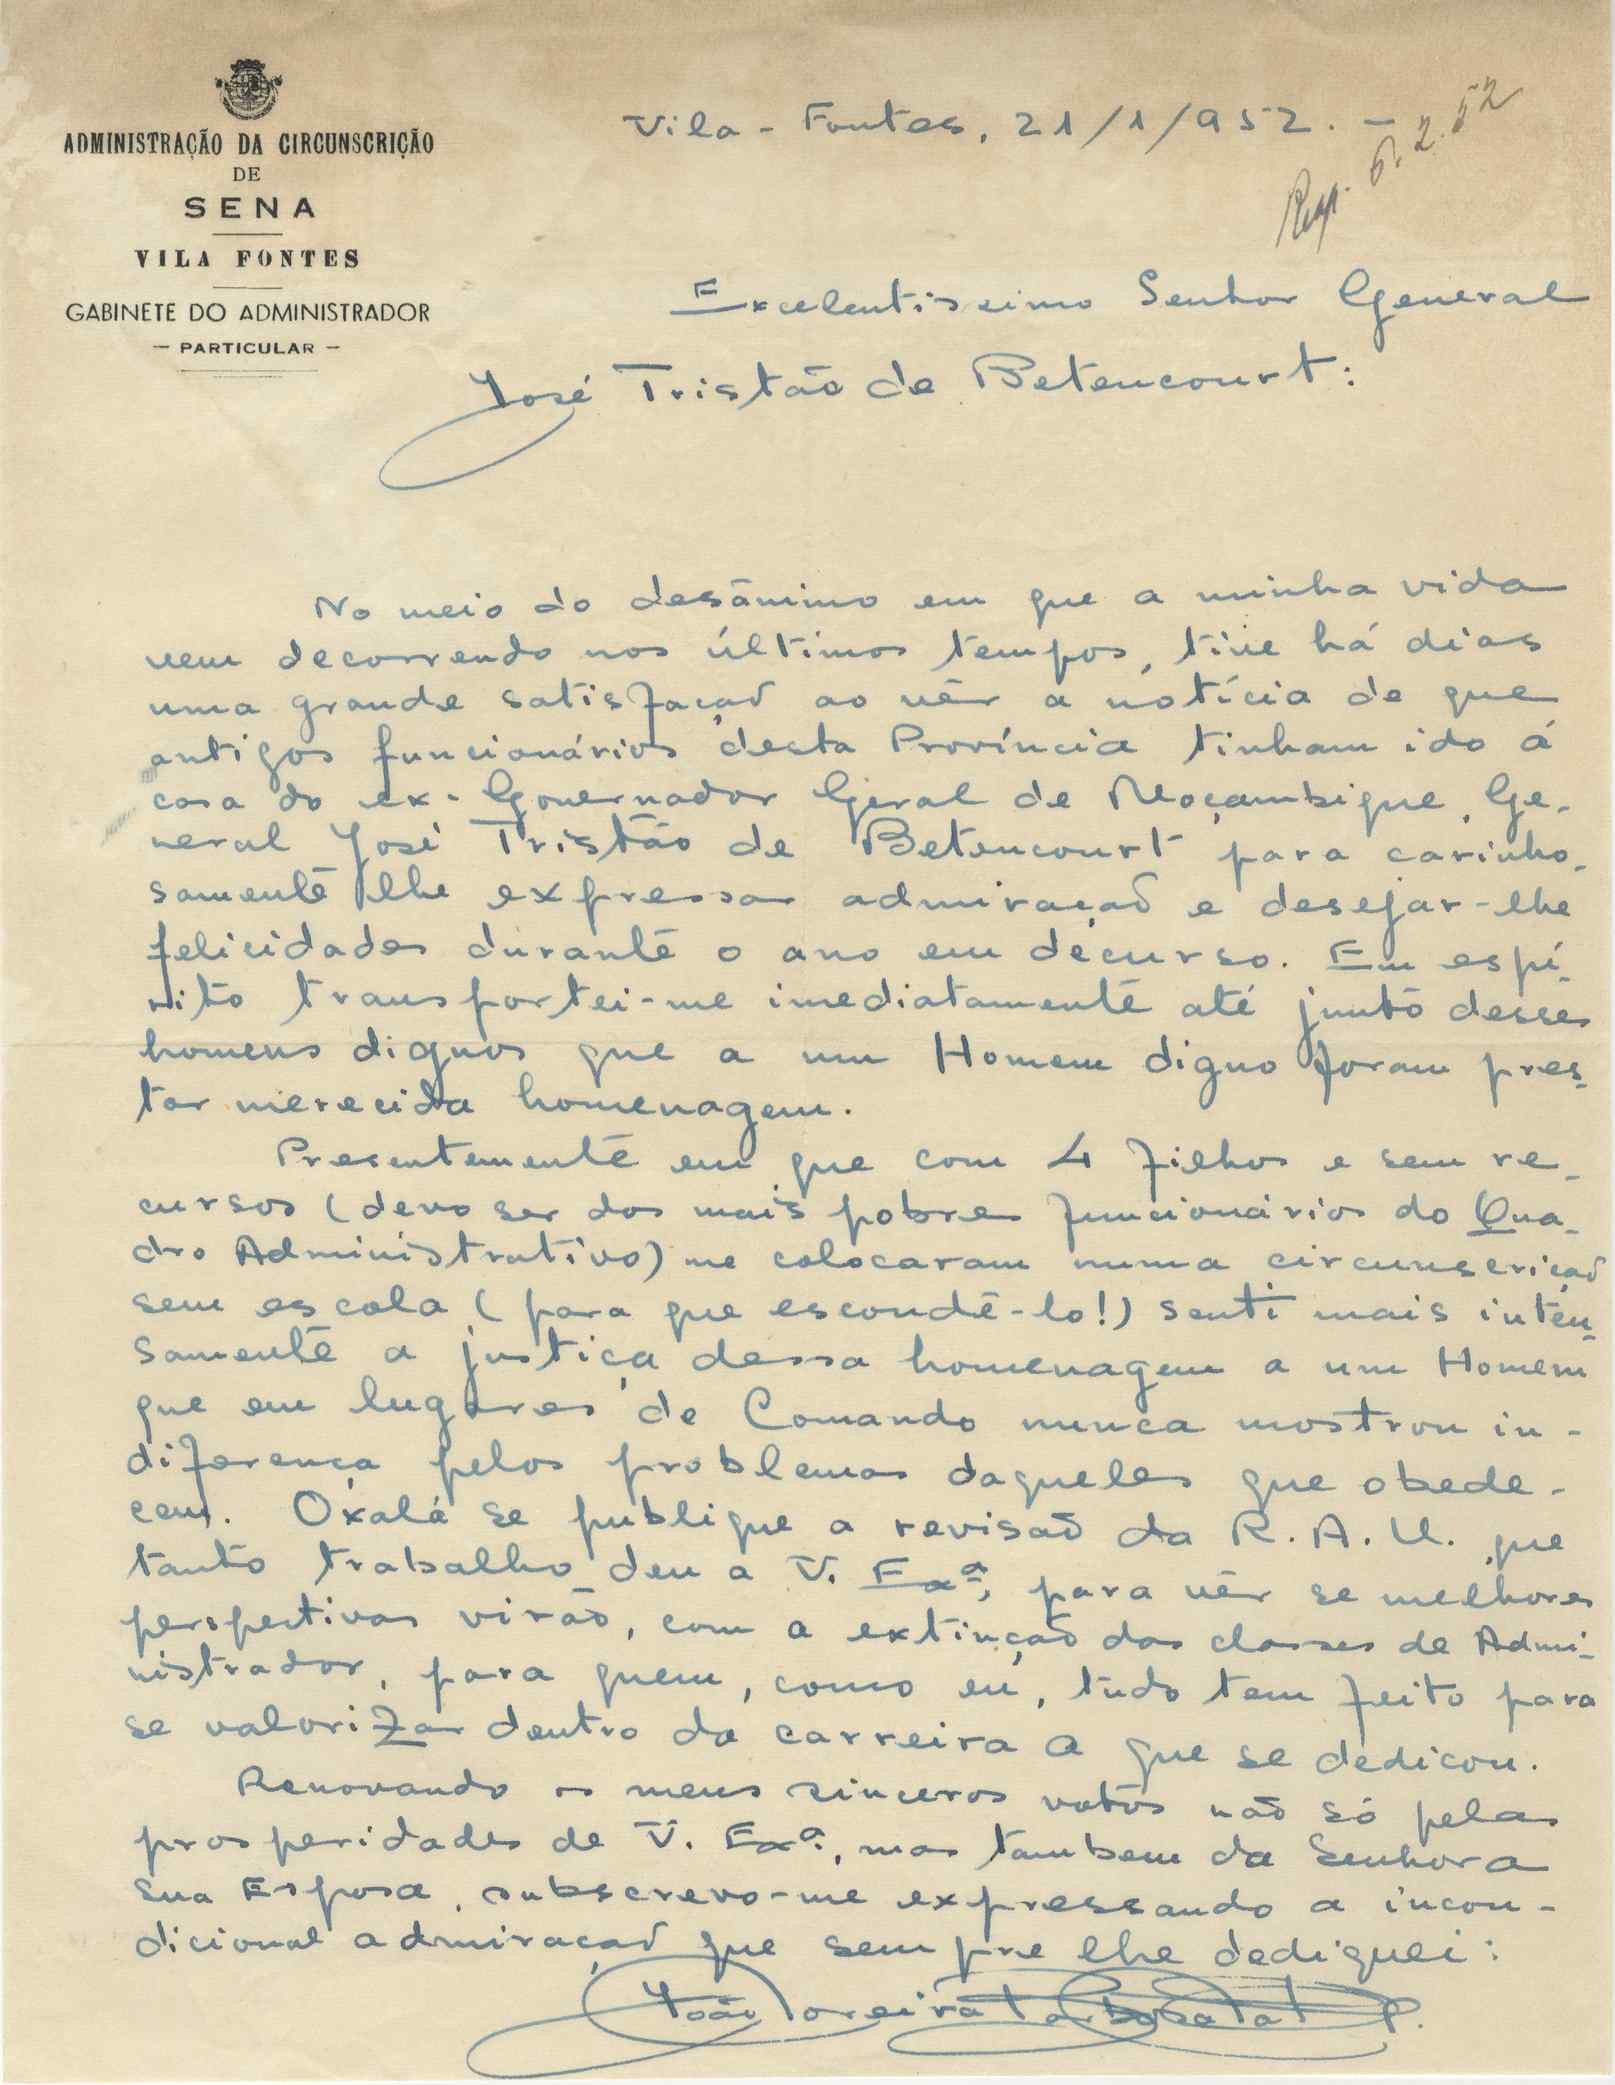 ADMINISTRAÇÃO DA CIRCUNSCRIÇÃO
DE
SENA
VILA FONTES
GABINETE DO ADMINISTRADOR
— PARTICULAR —
Vila - Fontes, 21/1/952. —
Resp. 5.2.52
Excelentissimo Senhor General
José Tristão de Betencourt:
No meio do desânimo em que a minha vida
vem decorrendo nos últimos tempos, tive há dias
uma grande satisfação ao vêr a notícia de que
antigos funcionários desta Província tinham ido á
casa do ex-Governador Geral de Moçambique, Ge-
neral José Tristão de Betencourt para carinho-
samente lhe expressar admiração e desejar-lhe
felicidades durante o ano em decurso. Em espí-
rito transportei-me imediatamente até junto desses
homens dignos que a um Homem digno foram pres-
tar merecida homenagem.
Presentemente em que com 4 filhos e sem re-
cursos (devo ser dos mais pobres funcionários do Qua-
dro Administrativo) me colocaram numa circunscrição
sem escola (para que escondê-lo!) senti mais inten-
samente a justiça dessa homenagem a um Homem
que em lugares de Comando nunca mostrou in-
diferença pelos problemas daqueles que obede-
cem. Oxalá se publique a revisão da R.A.U. que
tanto trabalho deu a V. Exª, para vêr se melhores
perspectivas virão, com a extinção das classes de Admi-
nistrador, para quem, como eu, tudo tem feito para
se valorizar dentro da carreira a que se dedicou.
Renovando os meus sinceros votos não só pelas
prosperidades de V. Exª., mas tambem da Senhora
sua Esposa, subscrevo-me expressando a incon-
dicional admiração que sempre lhe dediquei:
João